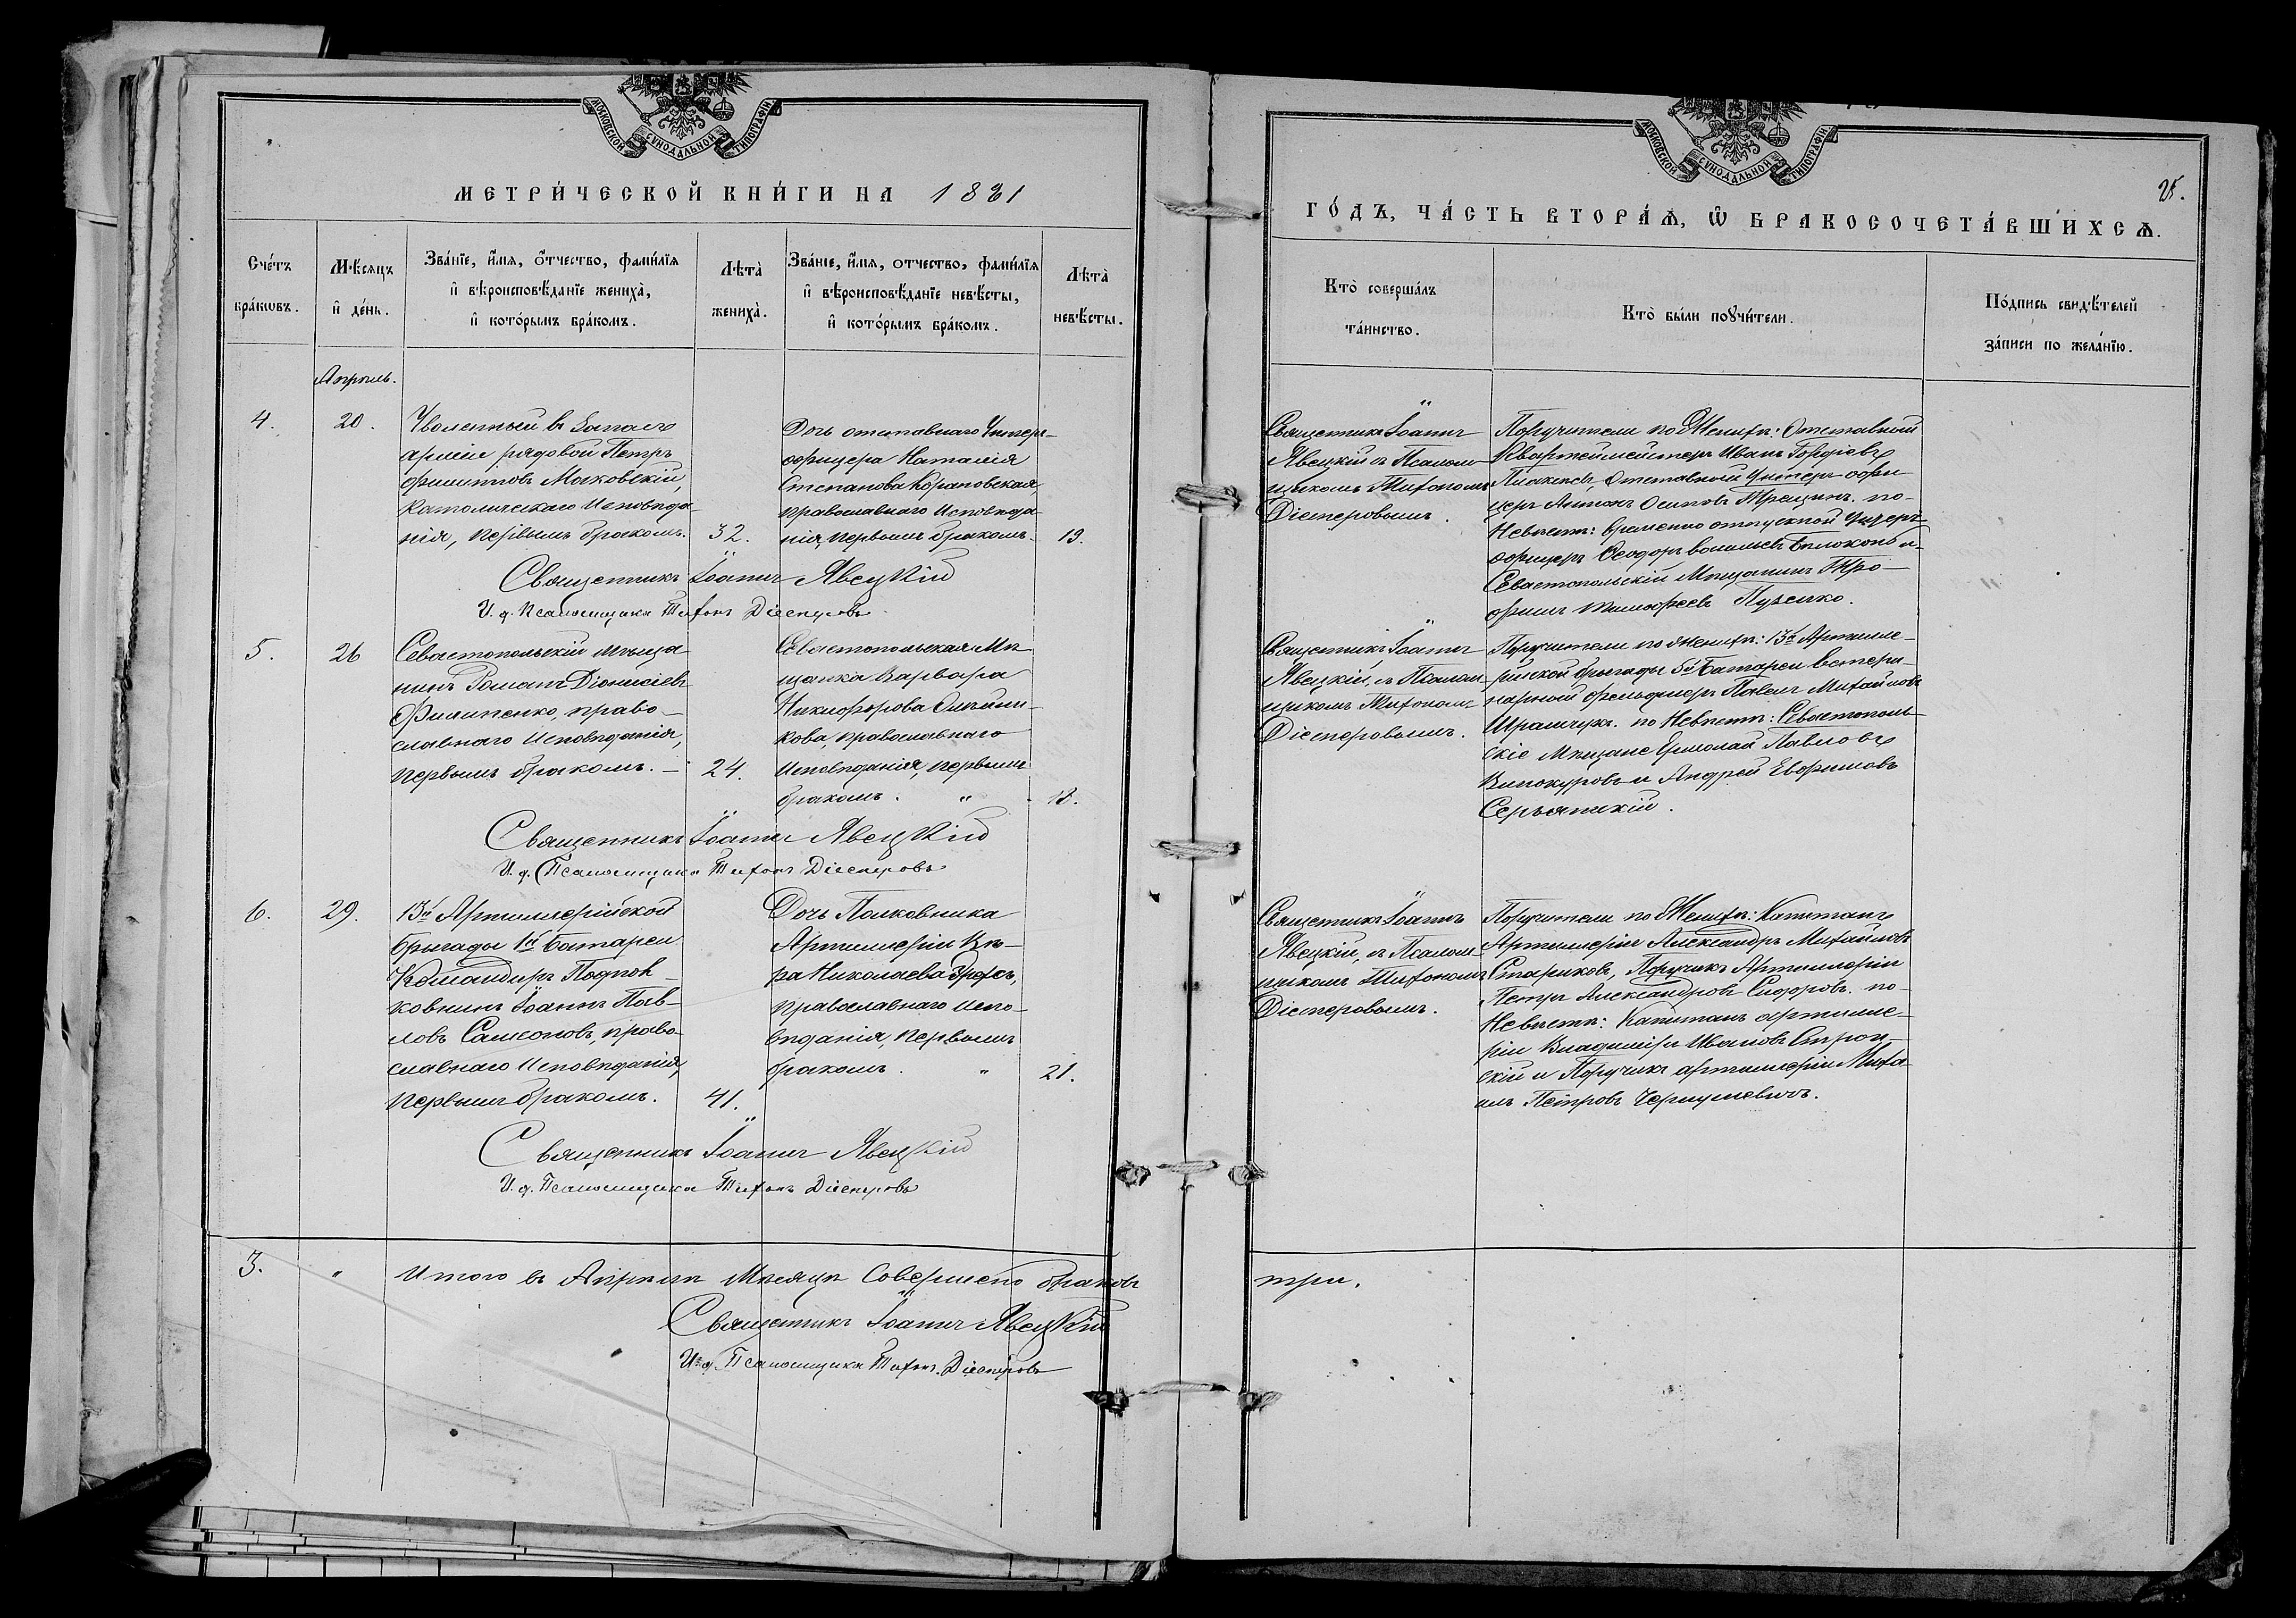 МОСКОВСКОЙ СѴНОДАЛЬНОЙ ТИПОГРАФІИ
МЕТРИ́ЧЕСКОЙ КНИ́ГИ НА 1881
Сче́тъ бра́кѡвъ.
Мѣ́сяцъ и҆ де́нь.
Зва́нїе, и҆́мѧ, ѻ҆́тчество, фами́лїѧ
и҆ вѣроисповѣ́данїе жениха̀,
и҆ кото́рымъ бра́комъ.
Лѣта̀ жениха̀.
Зва́нїе, и҆́мѧ, отчество, фами́лїѧ
и҆ вѣроисповѣ́данїе невѣ́сты,
и҆ кото́рымъ бра́комъ.
Лѣта̀ невѣ́сты.
Апрѣль.
4.
20.
Уволенный въ Запасъ
арміи рядовой Петръ
Филиповъ Маковскій,
Католическаго Исповѣда-
нія, первымъ бракомъ.
32.
Дочь отставнаго Унтеръ-
офицера Наталія
Степанова
православнаго Исповѣда-
нія, первымъ бракомъ.
19.
Священникъ Іоаннъ Явецкій
И. д. Псаломщика Тихонъ Діесперовъ
5.
26
Севастопольскій мѣща-
нинъ Романъ Діонисіевъ
Филипенко, право-
славнаго Исповѣданія,
первымъ бракомъ. —
24.
Севастопольская Мѣ-
щанка Варвара
Никифорова Олейни-
кова, православнаго
Исповѣданія, первымъ
бракомъ. "
18.
Священникъ Іоаннъ Явецкій
И. д. Псаломщика Тихонъ Діесперовъ
6.
29.
13й Артиллерійской
бригады 1й Батареи
Командиръ Подпол-
ковникъ Іоаннъ Пав-
ловъ Самсоновъ, право-
славнаго Исповѣданія,
первымъ бракомъ.
41.
Дочь Полковника
Артиллеріи Вѣ-
ра Николаева
православнаго Испо-
вѣданія, первымъ
бракомъ. "
21.
Священникъ Іоаннъ Явецкій
И. д. Псаломщика Тихонъ Діесперовъ
3.
"
Итого въ Апрѣлѣ Мѣсяцѣ Совершено браковъ
Священникъ Іоаннъ Явецкій
И. д. Псаломщика Тихонъ Діесперовъ
МОСКОВСКОЙ СѴНОДАЛЬНОЙ ТИПОГРАФІИ
25.
ГО́ДЪ, ЧА́СТЬ ВТОРА́Ѧ, Ѽ БРАКОСОЧЕТА́ВШИХСѦ.
Кто̀ соверша́лъ та́инство.
Кто̀ бы́ли поꙋчи́тели.
По́дпись свидѣ́телей за́писи по жела́нїю.
Священникъ Іоаннъ
Явецкій съ Псалом-
щикомъ Тихономъ
Діесперовымъ.
Поручители по Женихѣ: Отставный
Квартеймейстеръ Иванъ Гордіевъ
Отставной Унтеръ-офи-
церъ Антонъ Осиповъ по
Невѣстѣ: временно отпускной Унтеръ-
офицеръ Феодоръ Васильевъ Бѣлоконь и
Севастопольскій Мѣщанинъ Тро-
фимъ Тимофѣевъ
"
Священникъ Іоаннъ
Явецкій, съ Псалом-
щикомъ Тихономъ
Діесперовымъ.
Поручители по Женихѣ: 13й Артилле-
рійской бригады 5й Батареи ветери-
нарный фельдшеръ Павелъ Михайловъ
Шрамчукъ. по Невѣстѣ: Севастополь-
скіе Мѣщане Ермолай Павловъ
Винокуровъ и Андрей Евфимовъ
Священникъ Іоаннъ
Явецкій, съ Псалом-
щикомъ Тихономъ
Діесперовымъ.
Поручители по Женихѣ: Капитанъ
Артиллеріи Александръ Михайловъ
Стариковъ, Поручикъ Артиллеріи
Петръ Александровъ Сидоровъ. по
Невѣстѣ: Капитанъ артилле-
ріи Владиміръ Ивановъ Строн-
скій и Поручикъ артиллеріи Миха-
илъ Петровъ
три.